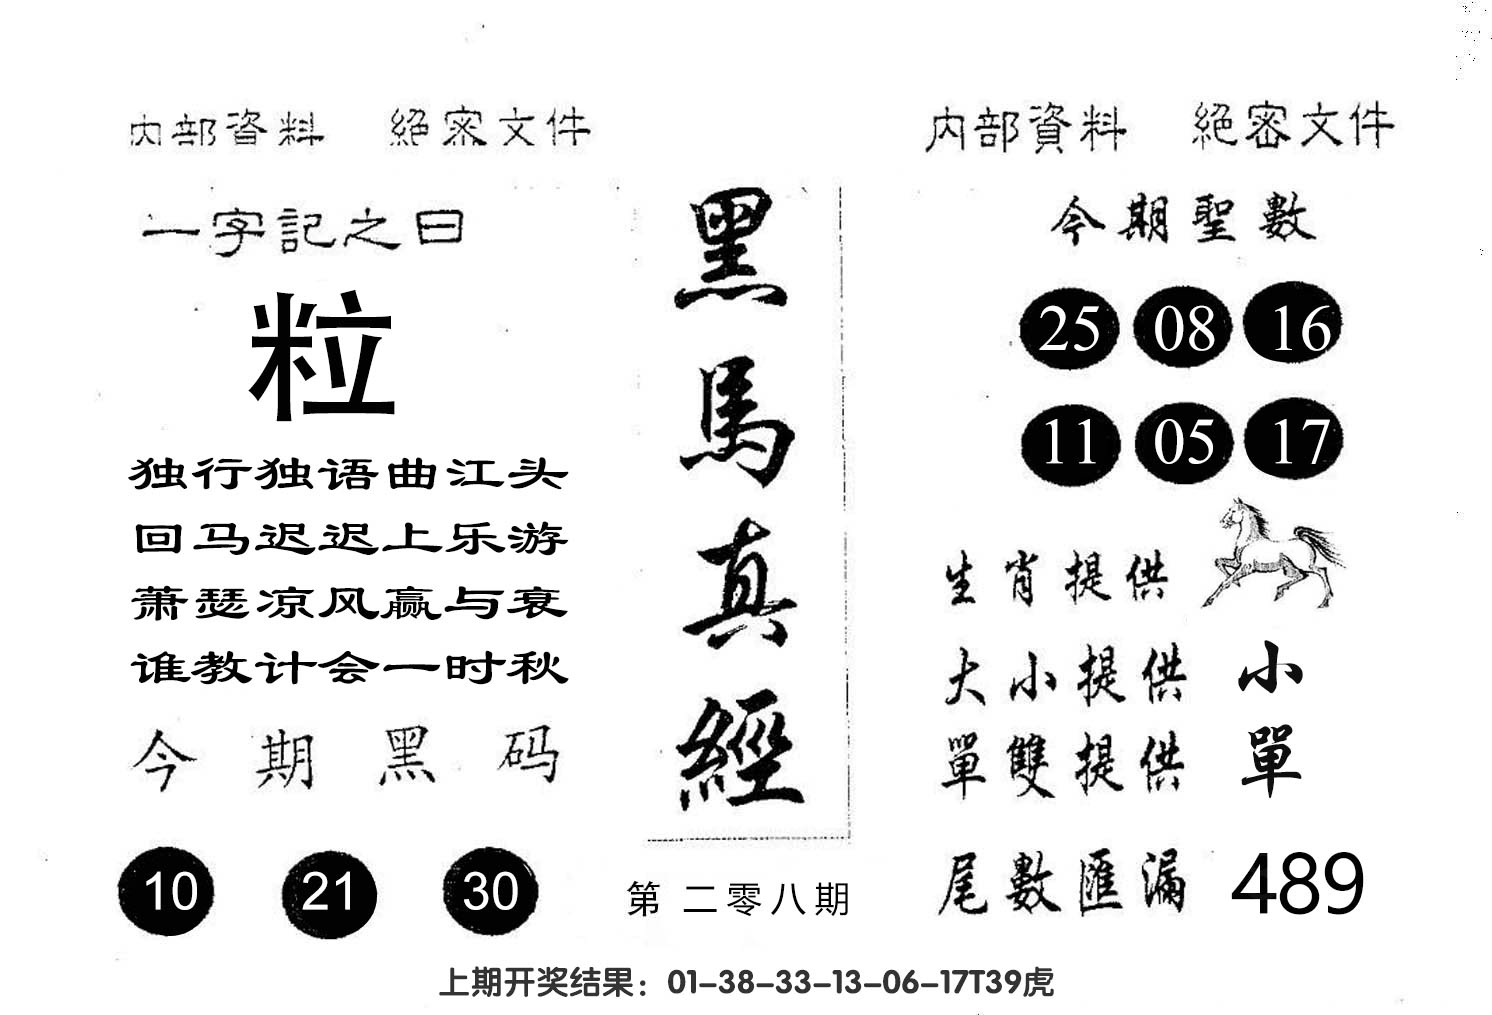 內部資料 絕密文件
一字記之曰
粒
独行独语曲江头
回马迟迟上乐游
萧瑟凉风赢与衰
谁教计会一时秋
今期黑码
10 21 30
黑馬真經
第二零八期
內部資料 絕密文件
今期聖數
25 08 16
11 05 17
生肖提供
大小提供 小
單雙提供 單
尾數匯漏 489
上期开奖结果：01-38-33-13-06-17T39虎